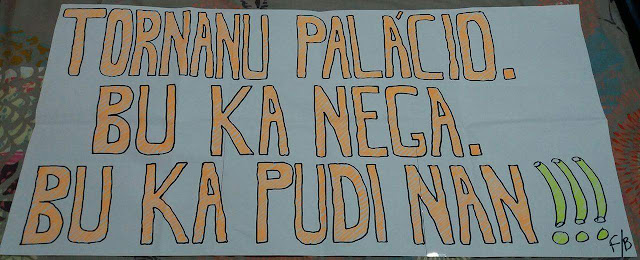 TORNANU PALÁCIO.
BU KA NEGA.
BU KA PUDI NAN!!!
F/B